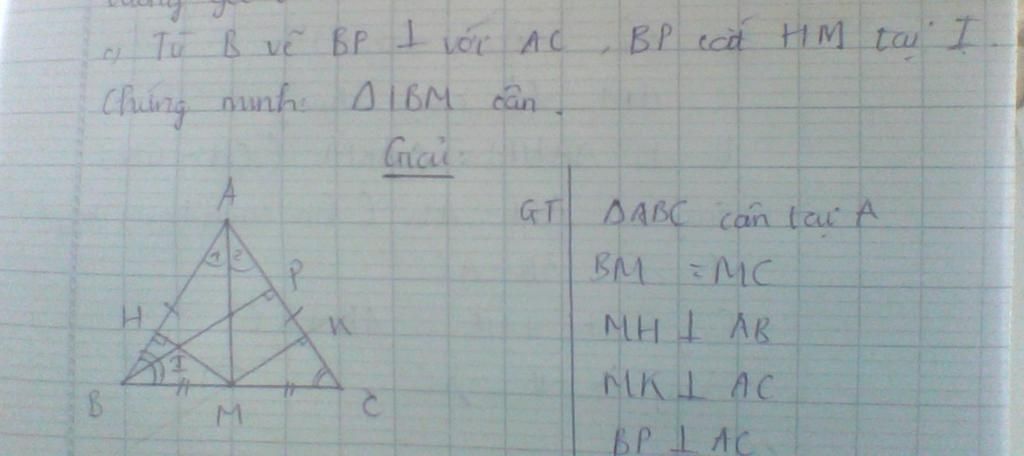 c) Từ B vẽ BP ⊥ với AC , BP cắt HM tại I.
Chứng minh: Δ IBM cân.
Giải:
A
1 2
P
H
K
I
B
M
C
GT
ΔABC cân tại A
BM = MC
MH ⊥ AB
MK ⊥ AC
BP ⊥ AC